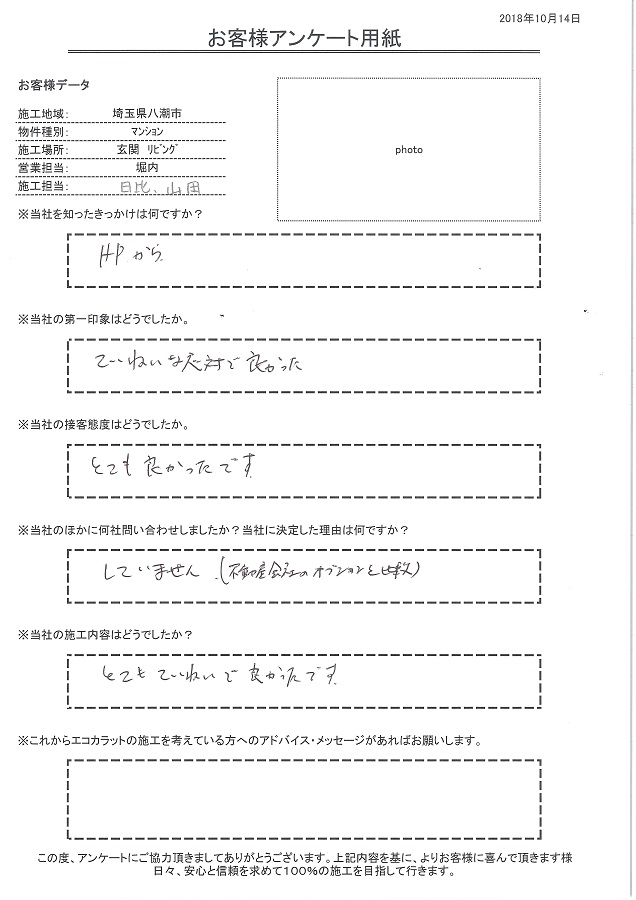 2018年10月14日
お客様アンケート用紙
お客様データ
施工地域: 埼玉県八潮市
物件種別: ﾏﾝｼｮﾝ
施工場所: 玄関 ﾘﾋﾞﾝｸﾞ
営業担当: 堀内
施工担当: 日比、山田
photo
※当社を知ったきっかけは何ですか？
HPから
※当社の第一印象はどうでしたか。
ていねいな応対で良かった
※当社の接客態度はどうでしたか。
とても良かったです
※当社のほかに何社問い合わせしましたか？当社に決定した理由は何ですか？
していません (不動産会社のオプションと比較)
※当社の施工内容はどうでしたか？
とてもていねいで良かったです
※これからエコカラットの施工を考えている方へのアドバイス・メッセージがあればお願いします。
この度、アンケートにご協力頂きましてありがとうございます。上記内容を基に、よりお客様に喜んで頂きます様
日々、安心と信頼を求めて100％の施工を目指して行きます。